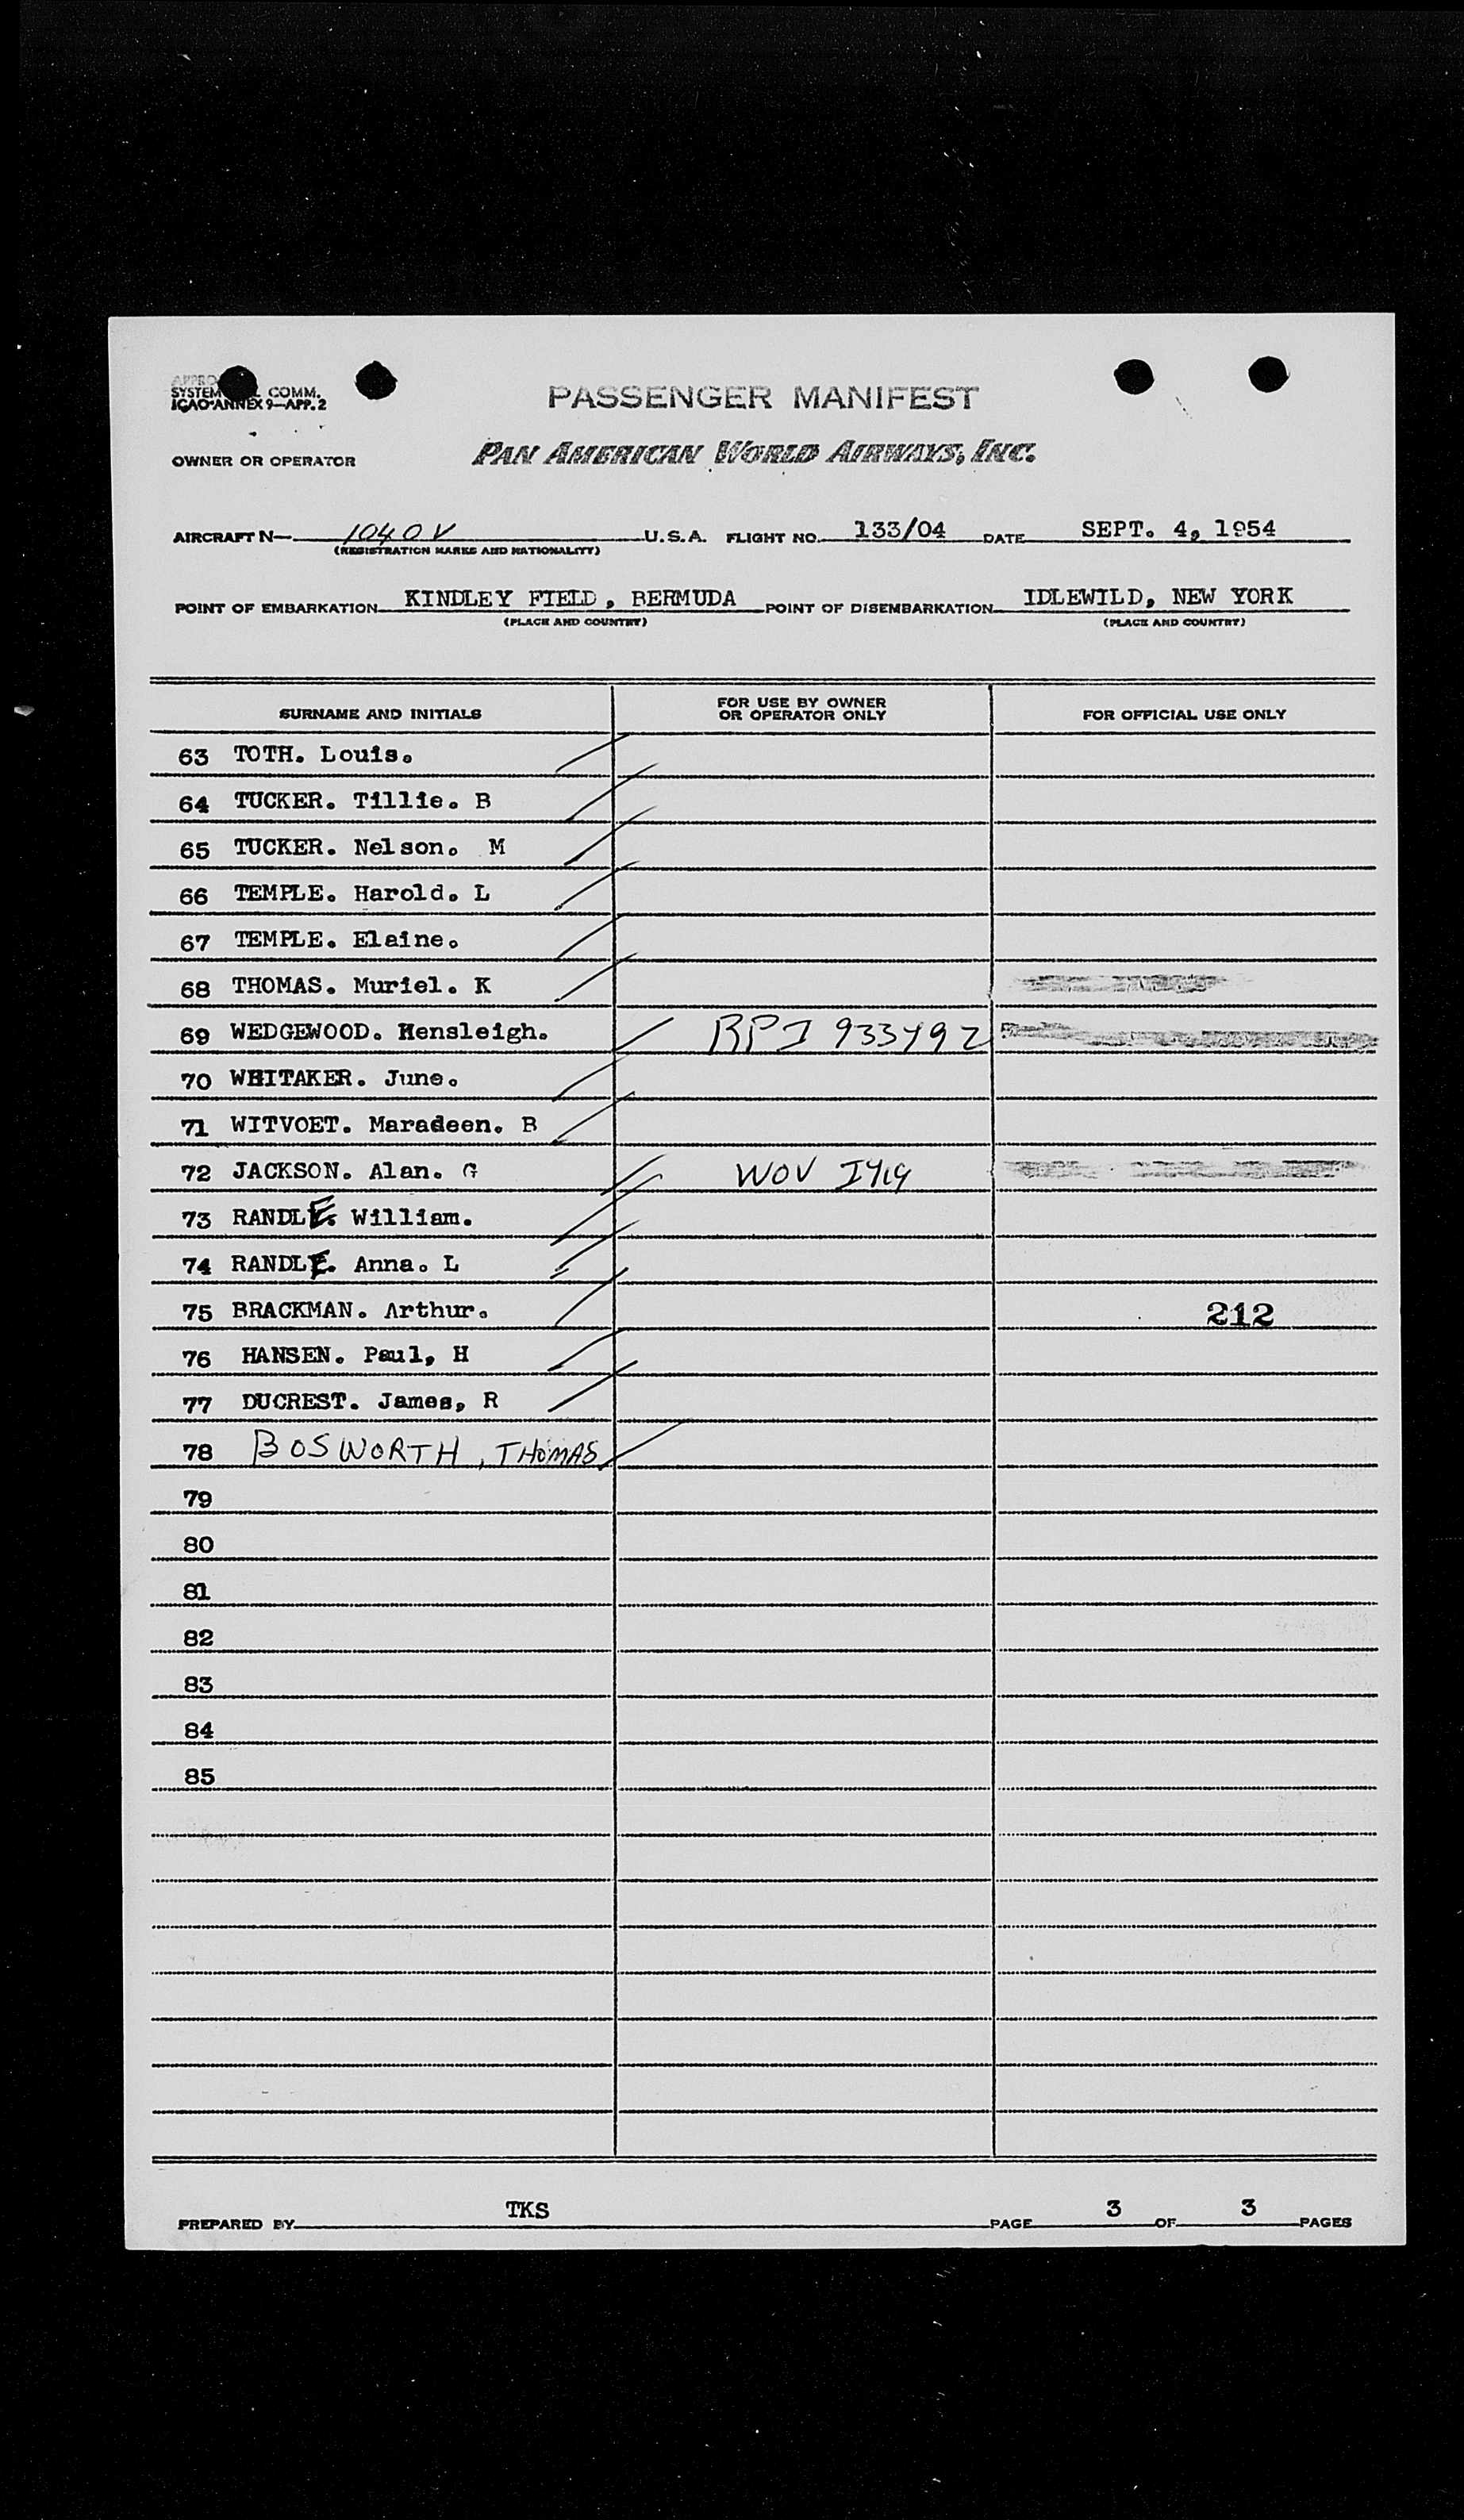 SYSTEM COMM.
ICAO ANNEX 9—APP. 2
PASSENGER MANIFEST
OWNER OR OPERATOR PAN AMERICAN WORLD AIRWAYS, INC.
AIRCRAFT N— 1040V U.S.A. FLIGHT NO. 133/04 DATE SEPT. 4, 1954
(REGISTRATION MARKS AND NATIONALITY)
POINT OF EMBARKATION KINDLEY FIELD, BERMUDA POINT OF DISEMBARKATION IDLEWILD, NEW YORK
(PLACE AND COUNTRY) (PLACE AND COUNTRY)
SURNAME AND INITIALS FOR USE BY OWNER OR OPERATOR ONLY FOR OFFICIAL USE ONLY
63 TOTH. Louis.
64 TUCKER. Tillie. B
65 TUCKER. Nelson. M
66 TEMPLE. Harold. L
67 TEMPLE. Elaine.
68 THOMAS. Muriel. K
69 WEDGEWOOD. Hensleigh. RPI 933492
70 WHITAKER. June.
71 WITVOET. Maradeen. B
72 JACKSON. Alan. G WOV
73 RANDLE. William.
74 RANDLE. Anna. L
75 BRACKMAN. Arthur. 212
76 HANSEN. Paul, H
77 DUCREST. James, R
78 BOSWORTH, THOMAS
79
80
81
82
83
84
85
PREPARED BY TKS PAGE 3 OF 3 PAGES